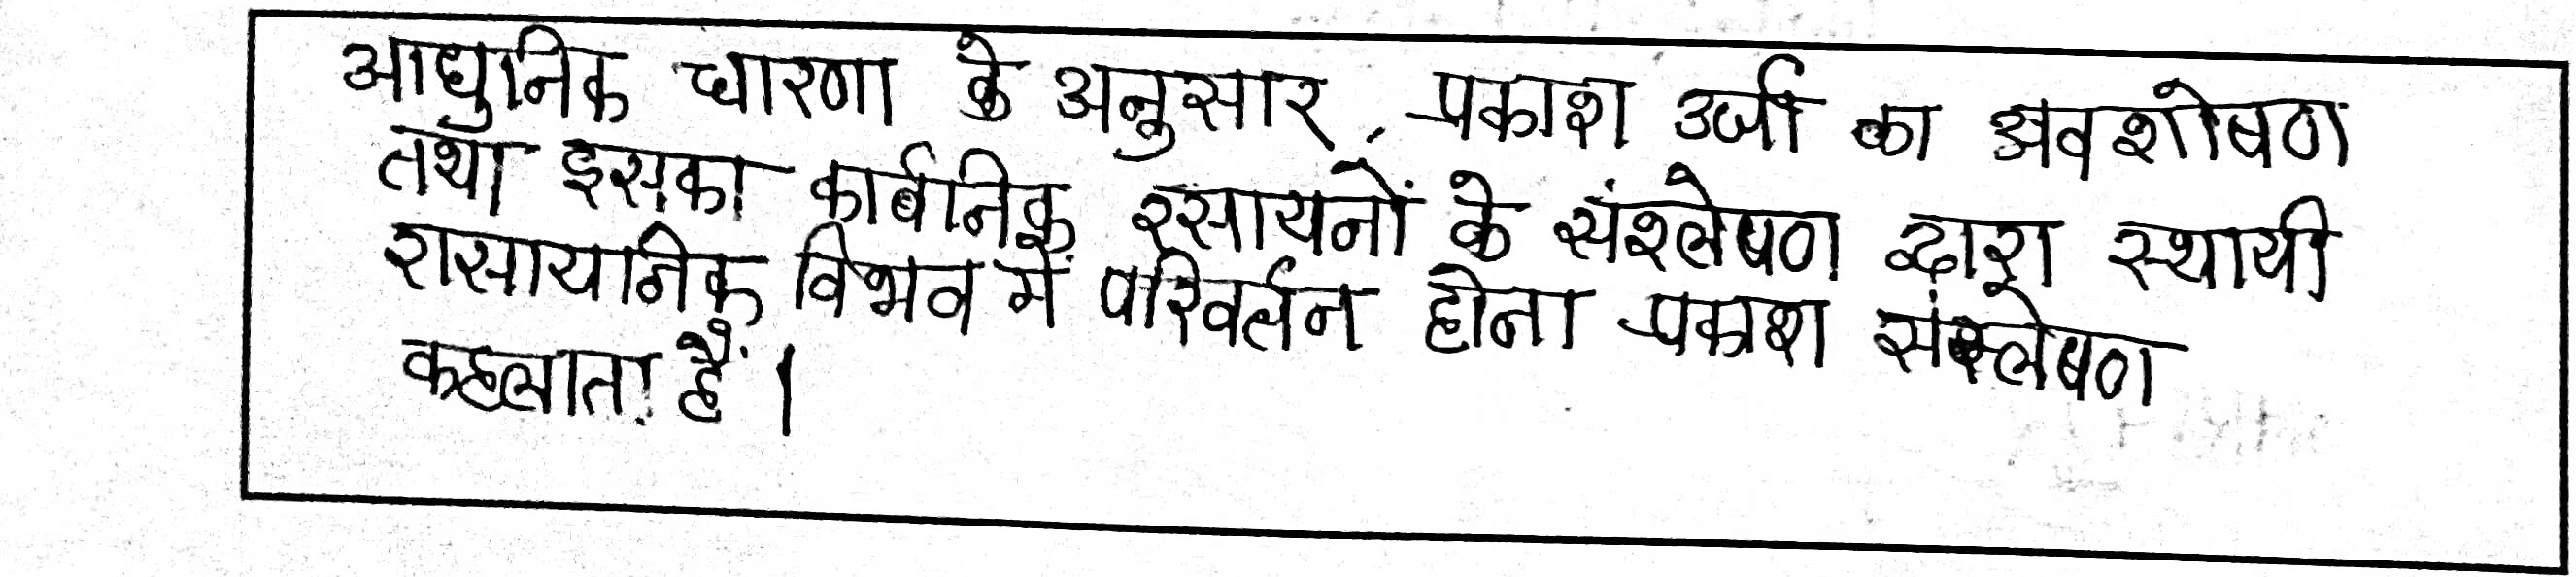 आधुनिक धारणा के अनुसार, प्रकाश उर्जा का अवशोषण
तथा इसका कार्बनिक रसायनों के संश्लेषण द्वारा स्थायी
रासायनिक विभव में परिवर्तन होना प्रकाश संश्लेषण
कहलाता हैं।